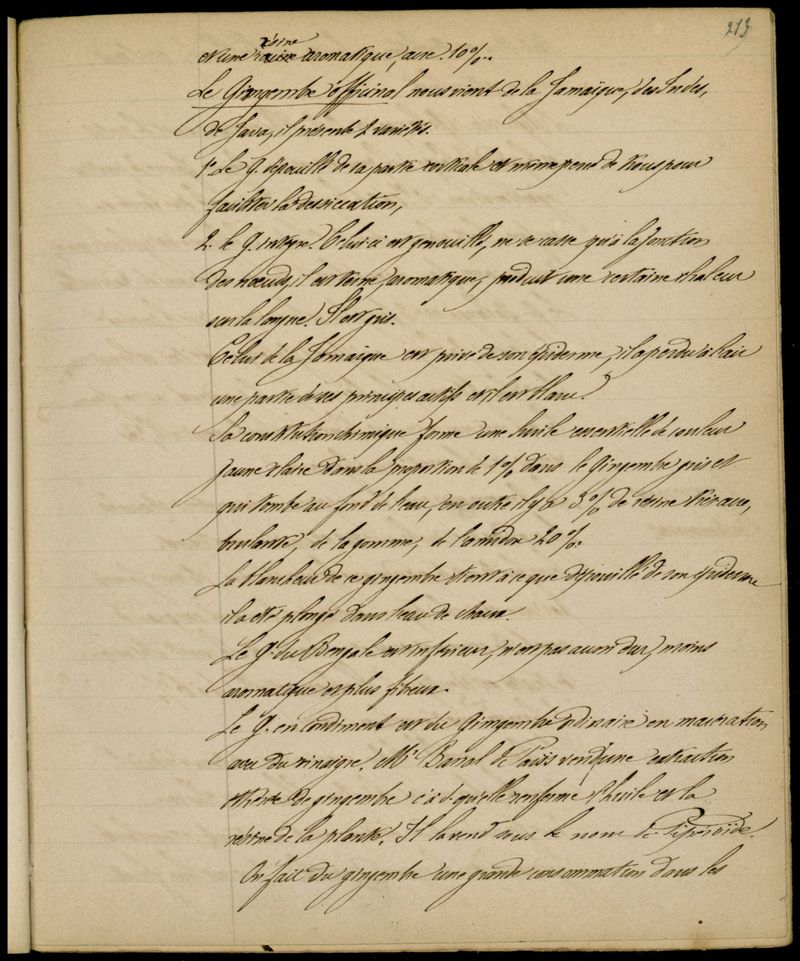 213
résine
et une racine aromatique, acre. 10%.
Le Gingembre officinal nous vient de la Jamaïque, des Indes,
de Java, il présente 2 variétés.
1° Le G. dépouillé de sa partie corticale et même pour
faciliter la dessiccation,
2. le G. intègre. Celui ci est genouillé, ne se casse qu'à la jonction
des nœuds, il est terne, aromatique, produit une certaine chaleur
sur la langue. Il est gris.
Celui de la Jamaïque est privé de son épiderme, il a perdu à l'air
une partie de ses principes actifs et il est blanc.
Sa constitution chimique forme une huile essentielle de couleur
jaune claire dans la proportion de 1% dans le Gingembre gris et
qui tombe au fond de l'eau, en outre il y a 3% de résine très acre,
brulante, de la gomme, de l'amidon 20%.
La blancheur de ce gingembre tient à ce que dépouillé de son épiderme
il a été plongé dans l'eau de chaux.
Le G. du Bengale est inférieur, n'est pas aussi dur, moins
aromatique et plus fibreux.
Le G. en condiment est du Gingembre ordinaire en macération
avec du vinaigre. Mr Barral de Paris vend une extraction
éthérée de gingembre c.à.d. qu'elle renferme l'huile et la
résine de la plante. Il la vend sous le nom de Pipéroïde.
On fait du gingembre une grande consommation dans les